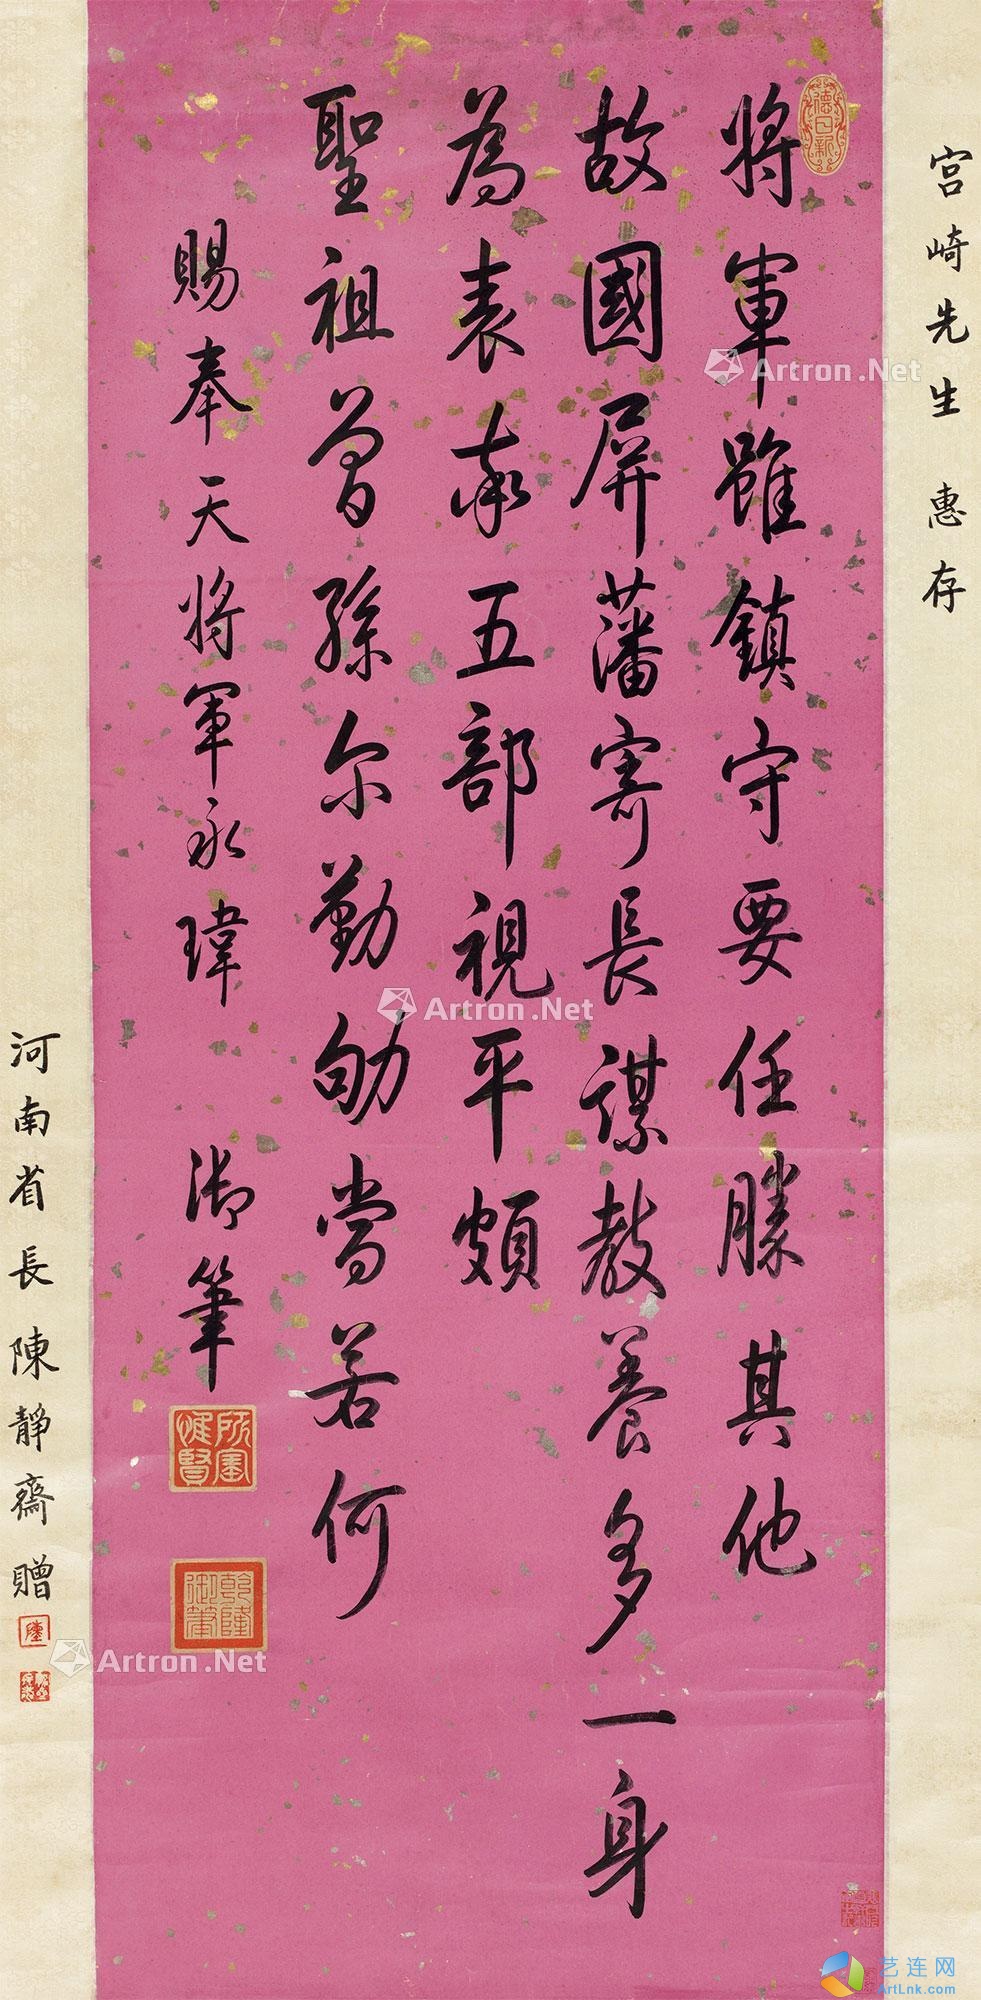 宮崎先生 惠存
德日新
將軍雖鎮守要任勝其他
故國屏藩寄長謀教養多一身
為表率五部視平頗
聖祖曾孫尔勤劬當若何
賜奉天將軍永瑋 御筆
所寶惟賢
乾隆御筆
河南省長陳靜齋贈
Artron.Net
Artron.Net
Artron.Net
艺连网
ArtLnk.com